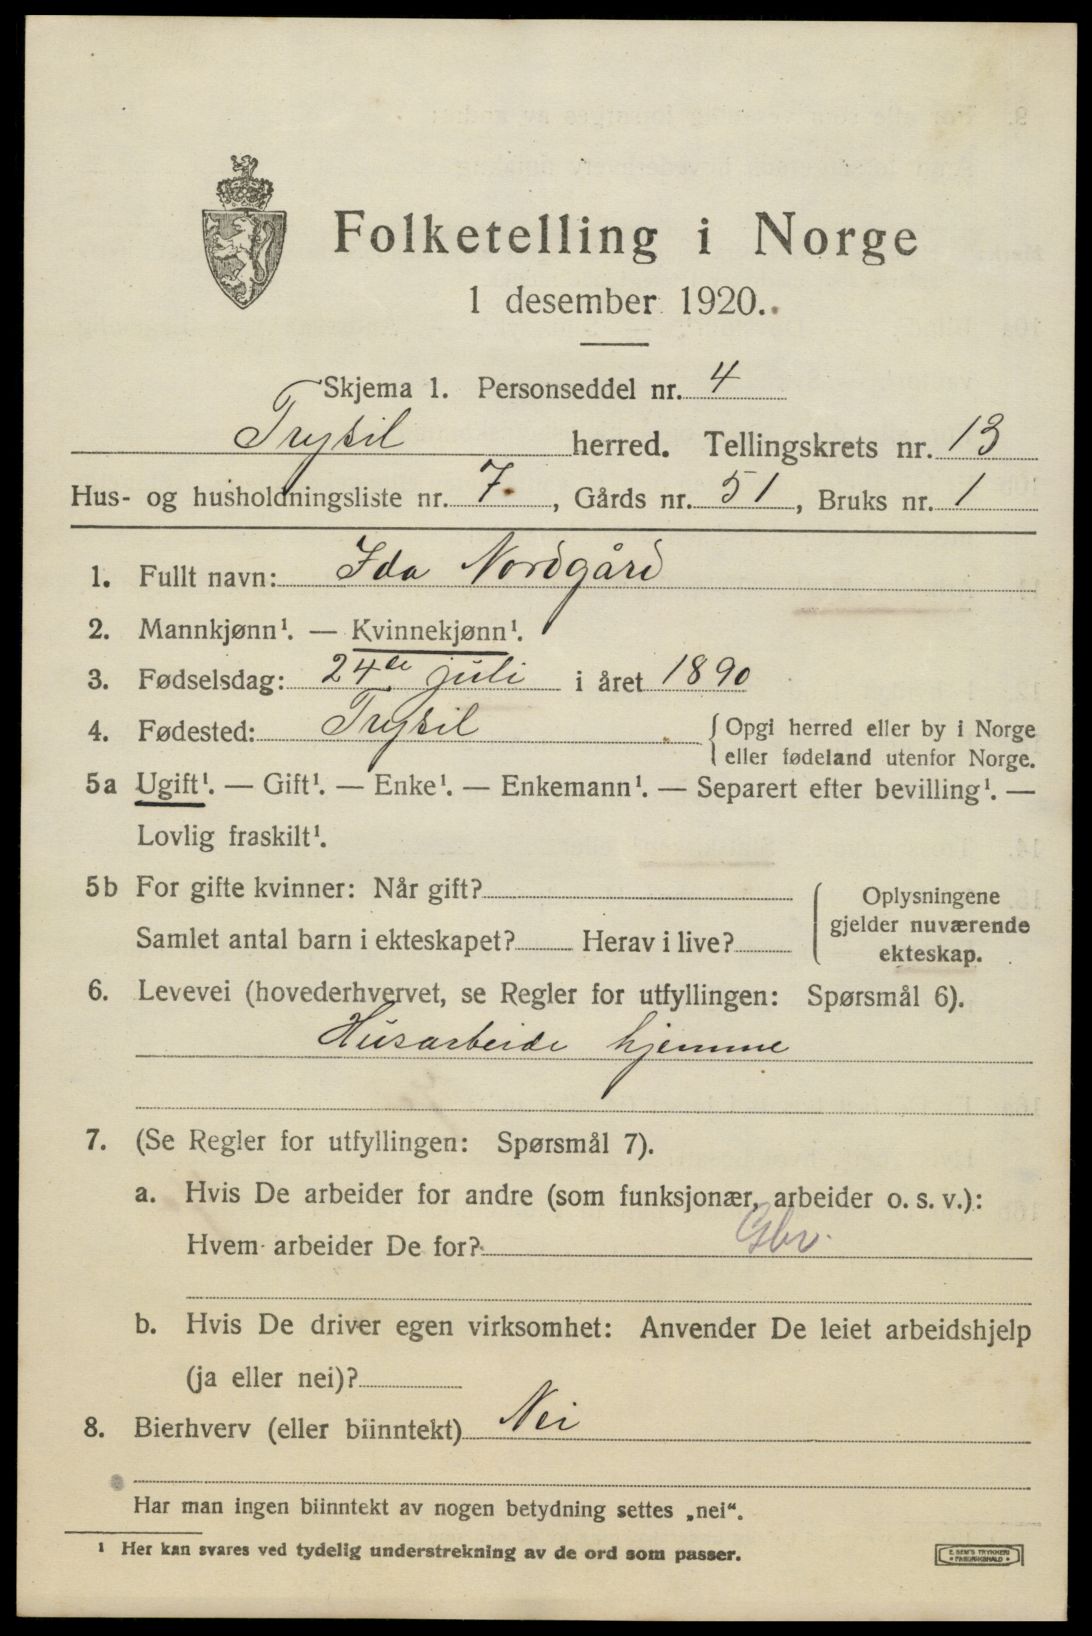 Folketelling i Norge
1 desember 1920.
Skjema 1. Personseddel nr. 4
Trysil herred. Tellingskrets nr. 13
Hus- og husholdningsliste nr. 7. , Gårds nr. 51 , Bruks nr. 1
1. Fullt navn: Ida Nordgård
2. Mannkjønn¹. — Kvinnekjønn¹.
3. Fødselsdag: 24de juli i året 1890
4. Fødested: Trysil { Opgi herred eller by i Norge
eller fødeland utenfor Norge.
5a Ugift¹. — Gift¹. — Enke¹. — Enkemann¹. — Separert efter bevilling¹. —
Lovlig fraskilt¹.
5b For gifte kvinner: Når gift?
Samlet antal barn i ekteskapet? Herav i live?
Oplysningene
gjelder nuværende
ekteskap.
6. Levevei (hovederhvervet, se Regler for utfyllingen: Spørsmål 6).
Husarbeide hjemme
7. (Se Regler for utfyllingen: Spørsmål 7).
a. Hvis De arbeider for andre (som funksjonær, arbeider o. s. v.):
Hvem arbeider De for? Gbr.
b. Hvis De driver egen virksomhet: Anvender De leiet arbeidshjelp
(ja eller nei)?
8. Bierhverv (eller biinntekt) Nei
Har man ingen biinntekt av nogen betydning settes „nei“.
¹ Her kan svares ved tydelig understrekning av de ord som passer.
E. SEM'S TRYKKERI
• FREDRIKSHALD •